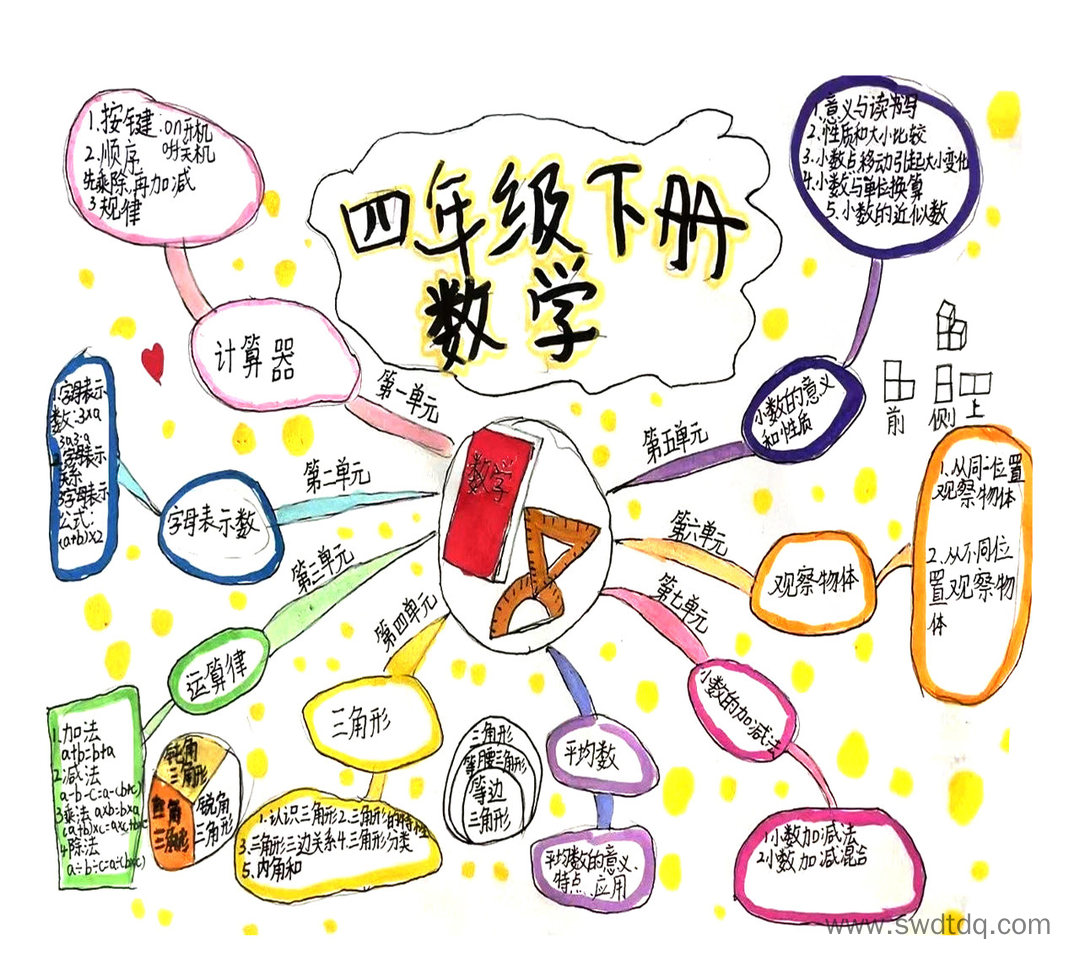 四年级下册
数学
1.按键:on开机
off关机
2.顺序
先乘除,再加减
3规律
计算器
第一单元
1.字母表示
数:3×a
3a3·a
字母表示
关系
字母表示
公式:
(a+b)×2
字母表示数
第二单元
第三单元
运算律
1.加法
a+b=b+a
2减法
a-b-c=a-(b+c)
3乘法 axb=bxa
(a+b)×c=axc+bxc
4除法
a÷b÷c=a÷(b×c)
第四单元
三角形
钝角
三角形
直角
三角形
锐角
三角形
1.认识三角形2.三角形的特性
3.三角形三边关系4.三角形分类
5.内角和
三角形
等腰三角形
等边
三角形
数学
平均数
平均数的意义、
特点、应用
第五单元
小数的意义
和性质
1.意义与读书写
2.性质和大小比较
3.小数点移动引起大小变化
4.小数与单位换算
5.小数的近似数
前 侧 上
第六单元
观察物体
1.从同一位置
观察物体
2.从不同位
置观察物
体
第七单元
小数的加减法
1小数加减法
2小数加减混合
www.swdtdq.com